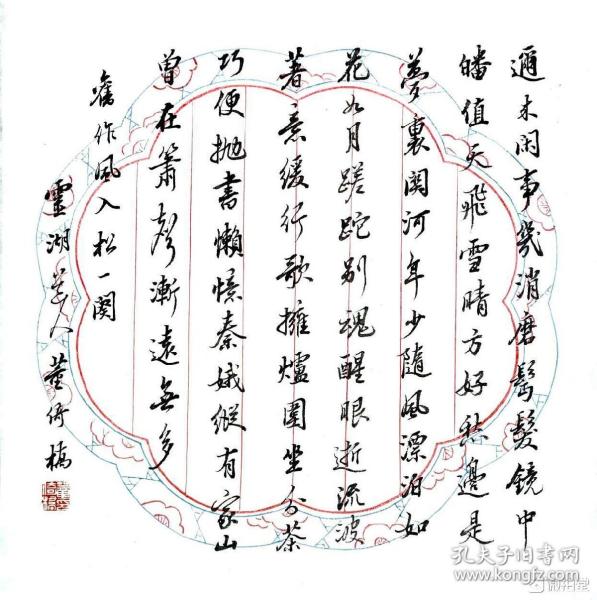 邇来闲事幾消磨髩髮鏡中
皤值天飛雪晴方好愁邊是
夢裏関河年少隨風漂泊如
花如月蹉跎别魂醒眼逝流波
著意緩行歌擁爐圍坐分茶
巧便抛書懶憶秦娥縱有家山
曾在簫聲漸遠無多
舊作風入松一闋
靈湖人董橋
孔夫子旧书网
www.kongfz.com
微拍堂